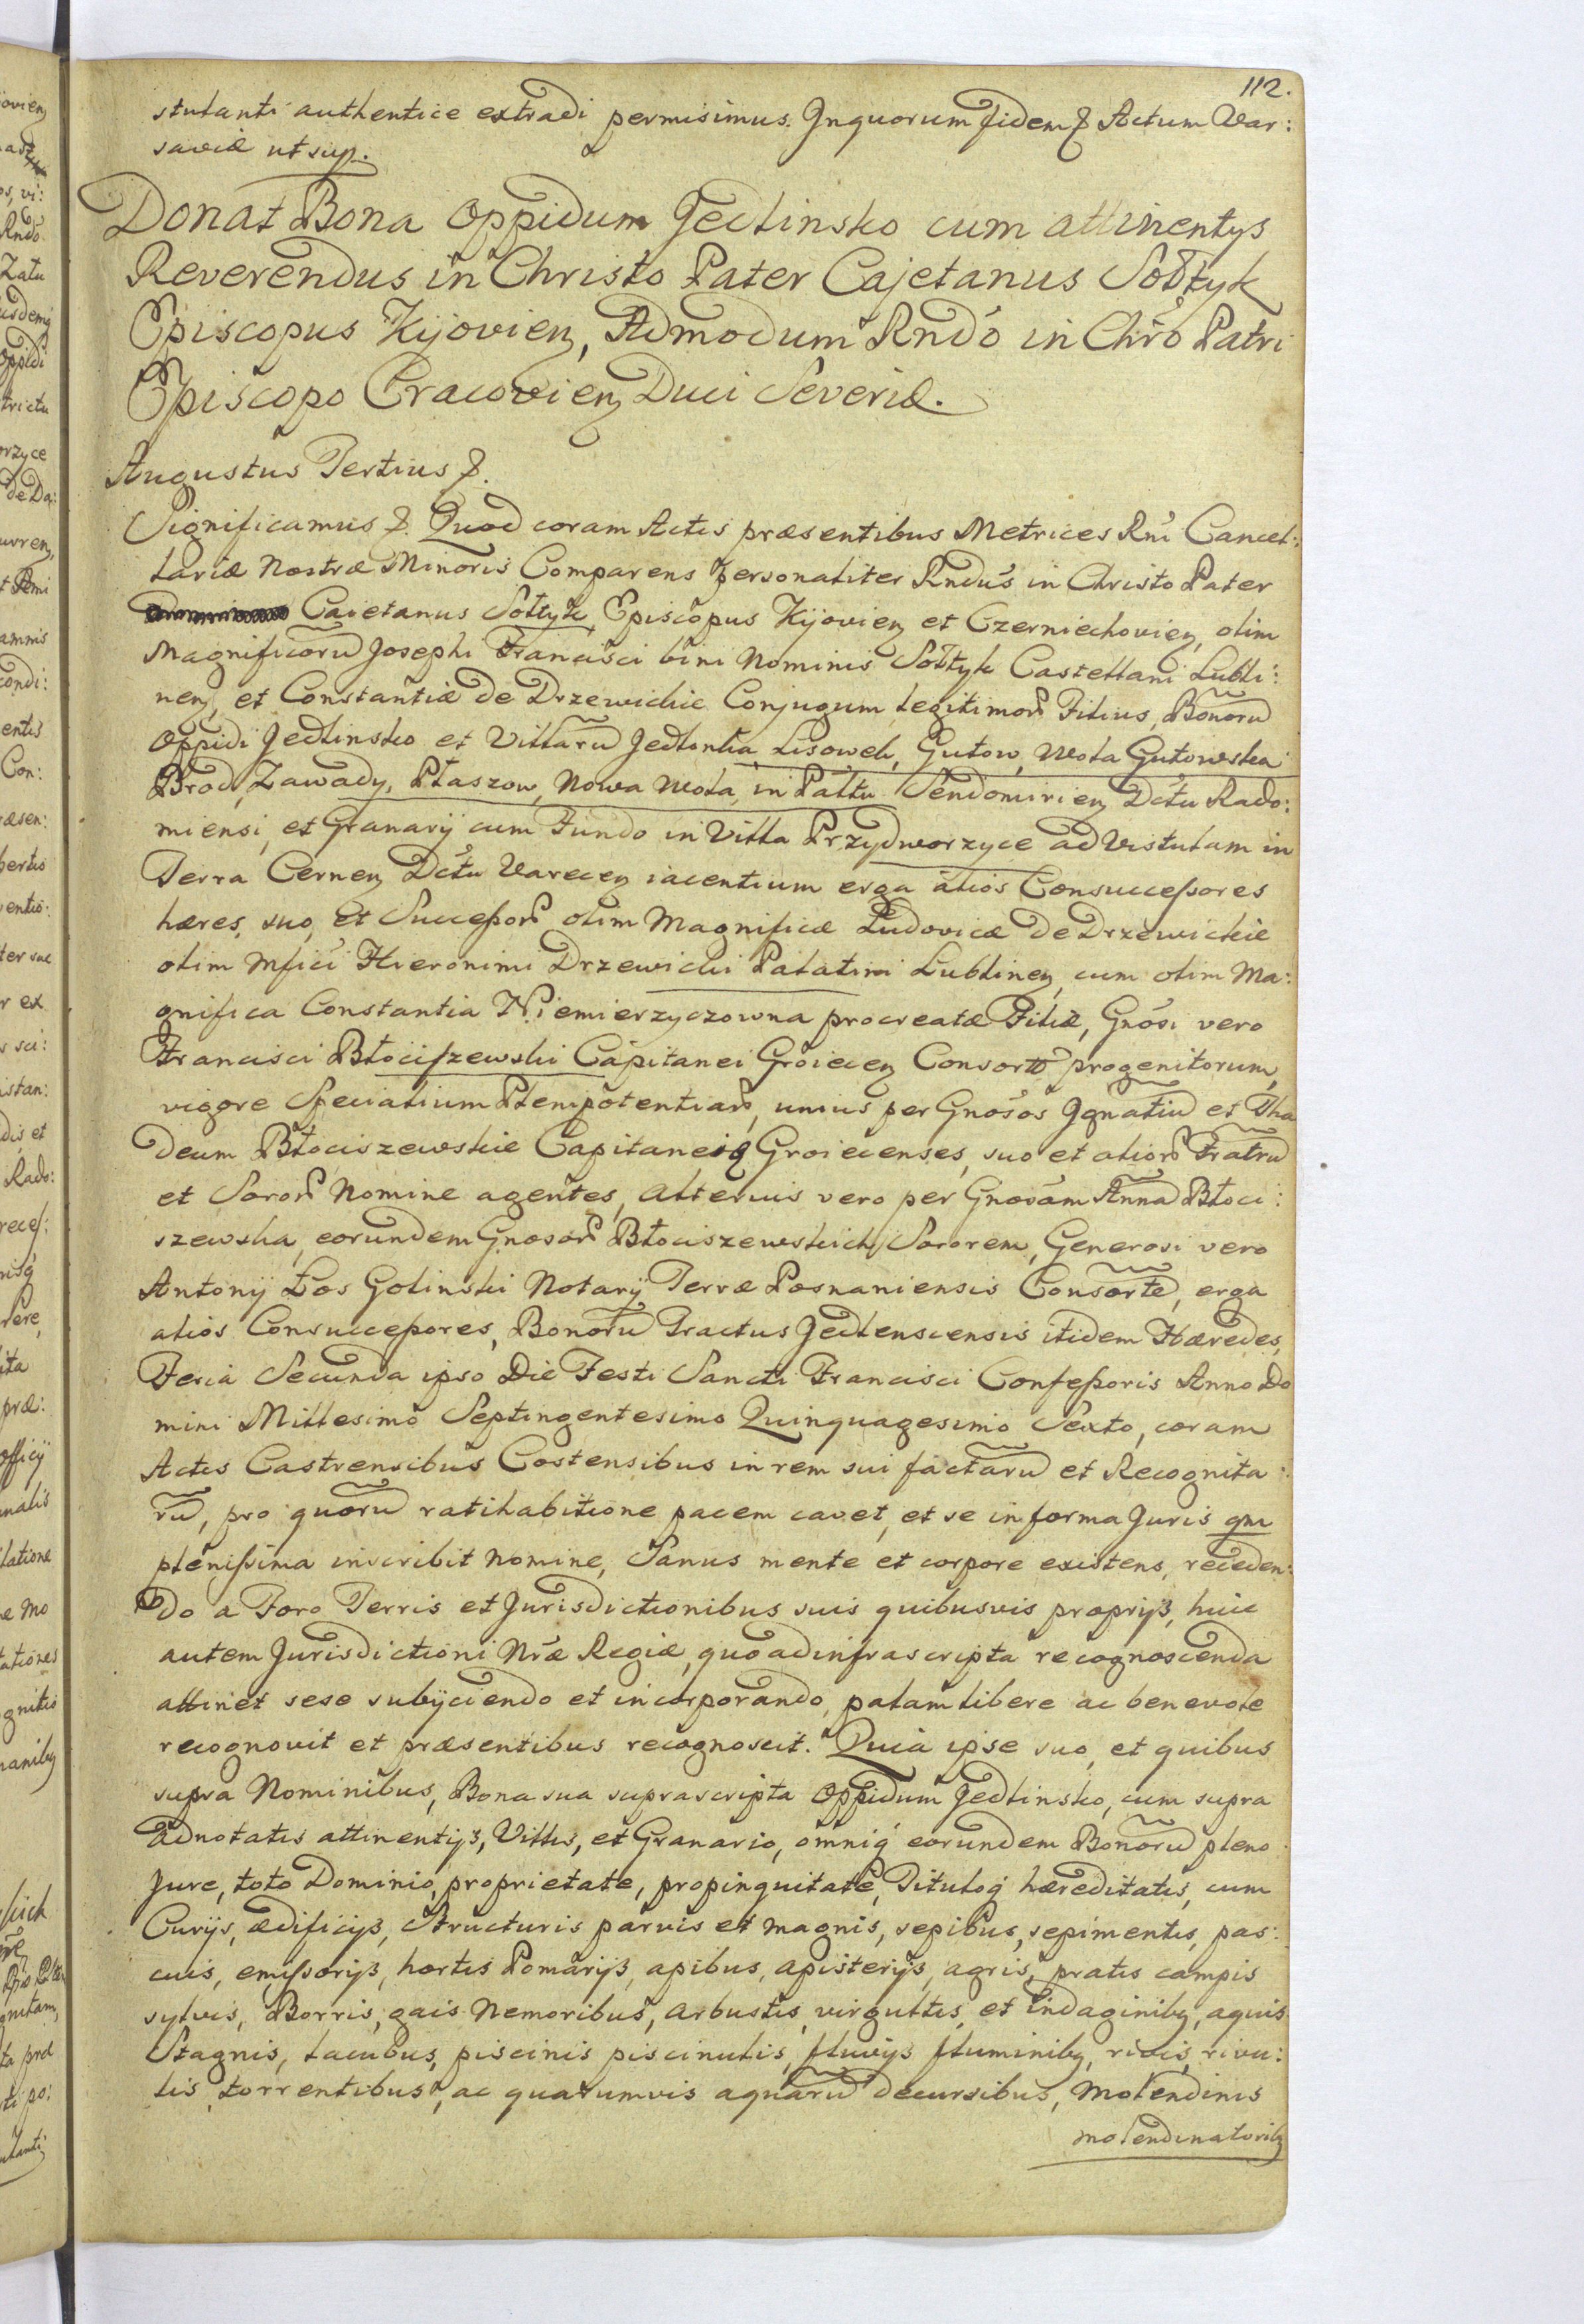 112.
stulanti authentice extradi permisimus. Inquorum fidem & Actum Var:
saviæ ut sup.
Donat Bona Oppidum Jedlinsko cum attinentys
Reverendus in Christo Pater Cajetanus Sołtyk
Episcopus Kijovien, Admodum Rndo in Chro Patri
Episcopo Cracovien Duci Severiæ.
Augustus Tertius &.
Significamus &. Quod coram Actis præsentibus Metrices Rni Cancel:
lariæ Nostræ Minoris Comparens personaliter Rndus in Christo Pater
Caietanus Sołtyk Episcopus Kijovien et Czerniechovien, olim
Magnificorũ Josephi Francisci bini Nominis Sołtyk Castellani Lubli:
nen, et Constantiæ de Drzewickie Conjugum legitimor Filius, Bonorũ
Oppidi Jedlinsko et Villarũ Jedlonka Lisowek, Gutow, Wola Gutowska
Brod, Zawady, Płaszow, Nowa Wola, in Pallu Sendomirien Dctu Rado:
miensi, et Granarij cum Fundo in Villa Przydworzyce ad Vistulam in
Terra Cernen Dctu Varecen iacentium erga alios Consuccessores
hæres, suo, et Successor olim Magnificæ Ludovicæ de Drzewickie
olim Mfici Hieronimi Drzewicki Palatini Lublinen, cum olim Ma:
gnifica Constantia Niemierzyczowna procreatæ Filiæ, Gnosi vero
Francisci Błociszewski Capitanei Groiecen Consort progenitorum,
vigore Specialium Plenipotentiar, unius per Gnosos Ignatiũ et Tha
deum Błociszewskie Capitaneiq Groiecenses, suo et alior Fratrũ
et Soror Nomine agentes, Alterius vero per Gnosam Annã Błoci:
szewska, eorundem Gnosor Błociszewskich Sororem, Generosi vero
Antonij Łos Golinski Notarij Terræ Posnaniensis Consortẽ, erga
alios Consuccessores, Bonorũ Tractus Jedlenscensis itidem Hæredes,
Feria Secunda ipso Die Festi Sancti Francisci Confessoris Anno Do
mini Millesimo Septingentesimo Quinquagesimo Sexto, coram
Actis Castrensibus Costensibus in rem sui factarũ et Recognita:
rũ, pro quorũ ratihabitione pacem cavet, et se in forma Juris qm
plenissima inscribit nomine, Sanus mente et corpore existens, receden:
do a Foro Terris et Jurisdictionibus suis quibusvis proprijs, huic
autem Jurisdictioni Nræ Regiæ, quo ad infrascripta recognoscenda
attinet sese subijciendo et incorporando, palam libere ac benevole
recognovit et præsentibus recognoscit. Quia ipse suo, et quibus
supra Nominibus, Bona sua suprascripta Oppidum Jedlinsko, cum supra
adnotatis attinentijs, Villis, et Granario, omniq eorundem Bonorũ pleno
Jure, toto Dominio, proprietate, propinquitate, Tituloq hæreditatis, cum
Curijs, ædificijs, Structuris parvis et magnis, sepibus, sepimentis, pas:
cuis, emissorijs, hortis Pomarijs, apibus, apisterijs, agris, pratis campis
sylvis, Borris, gais Nemoribus, arbustis, virgultis, et indaginibq, aquis
Stagnis, lacubus, piscinis piscinulis, fluvijs fluminibq, rivis, rivu:
lis, torrentibus, ac quarumvis aquarũ decursibus, molendinis
molendinatoribq